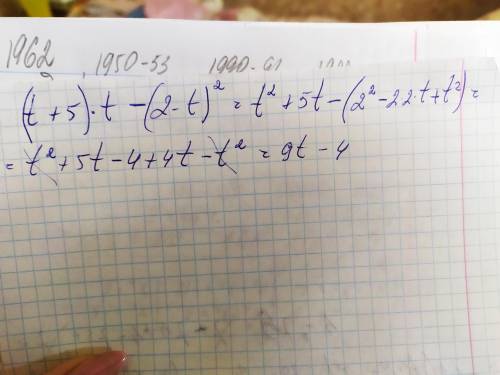 1962 1950-53
(t + 5) · t - (2 - t)² = t² + 5t - (2² - 2 2 · t + t²) =
= t² + 5t - 4 + 4t - t² = 9t - 4